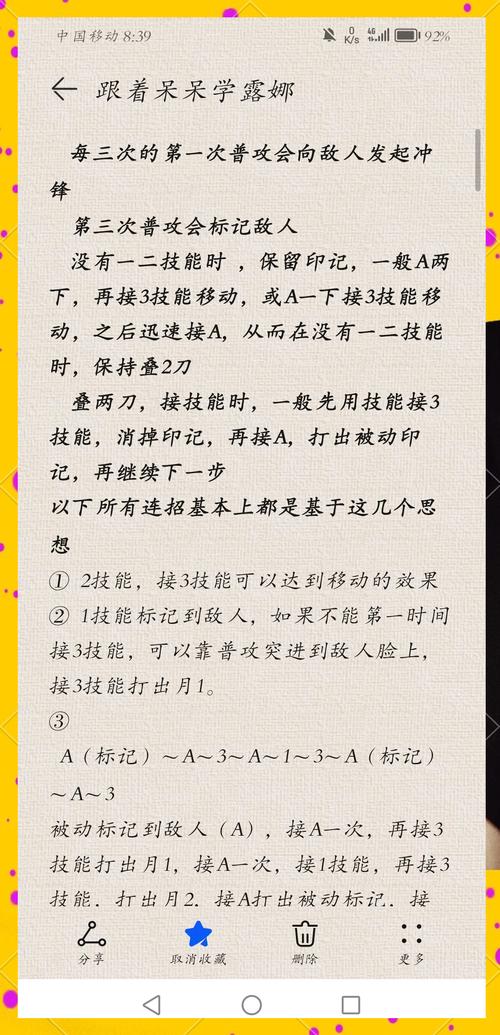 中国移动 8:39
0 K/s 4G 92%
跟着呆呆学露娜
每三次的第一次普攻会向敌人发起冲
锋
第三次普攻会标记敌人
没有一二技能时 ，保留印记，一般A两
下，再接3技能移动，或A一下接3技能移
动，之后迅速接A，从而在没有一二技能
时，保持叠2刀
叠两刀，接技能时，一般先用技能接3
技能，消掉印记，再接A，打出被动印
记，再继续下一步
以下所有连招基本上都是基于这几个思
想
① 2技能，接3技能可以达到移动的效果
② 1技能标记到敌人，如果不能第一时间
接3技能，可以靠普攻突进到敌人脸上，
接3技能打出月1。
③
A（标记）～A～3～A～1～3～A（标记）
～A～3
被动标记到敌人（A），接A一次，再接3
技能打出月1，接A一次，接1技能，再接3
技能．打出月2．接A打出被动标记．接
分享 取消收藏 删除 更多